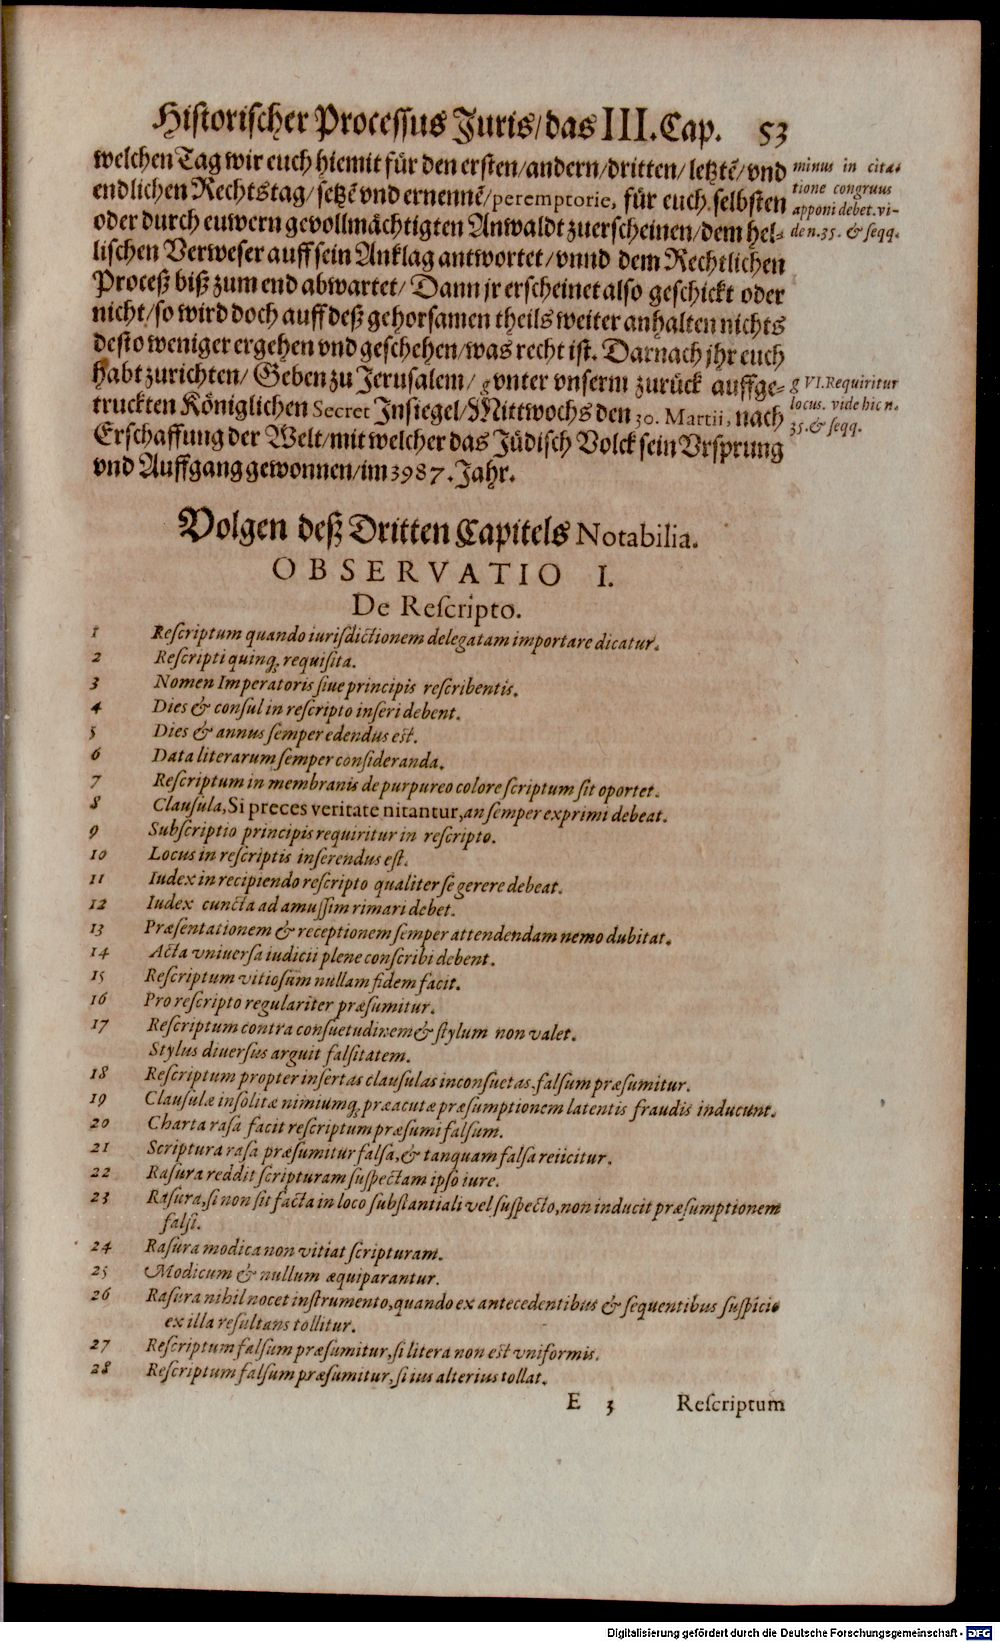 Historischer Processus Juris/das III. Cap. 53
welchen Tag wir euch hiemit für den ersten/andern/dritten/letztẽ/vnd
endlichen Rechtstag/setzẽ vnd ernennẽ/peremptorie, für euch selbsten
oder durch euwern gevollmächtigten Anwaldt zuerscheinen/dem hel-
lischen Verweser auff sein Anklag antwortet/vnnd dem Rechtlichen
Proceß biß zum end abwartet/ Dann jr erscheinet also geschickt oder
nicht/so wird doch auff deß gehorsamen theils weiter anhalten nichts
desto weniger ergehen vnd geschehen/was recht ist. Darnach jhr euch
habt zurichten/ Geben zu Jerusalem/ g vnter vnserm zurück auffge-
truckten Königlichen Secret Insiegel/Mittwochs den 30. Martii, nach
Erschaffung der Welt/mit welcher das Jüdisch Volck sein Vrsprung
vnd Auffgang gewonnen/im 3987. Jahr.
minus in cita-
tione congruus
apponi debet. vi-
de n. 35. & seqq.
g VI. Requiritur
locus. vide hic n.
35. & seqq.
Volgen deß Dritten Capitels Notabilia.
OBSERVATIO I.
De Rescripto.
1 Rescriptum quando iurisdictionem delegatam importare dicatur.
2 Rescripti quinq; requisita.
3 Nomen Imperatoris siue principis rescribentis.
4 Dies & consul in rescripto inseri debent.
5 Dies & annus semper edendus est.
6 Data literarum semper consideranda.
7 Rescriptum in membranis de purpureo colore scriptum sit oportet.
8 Clausula, Si preces veritate nitantur, an semper exprimi debeat.
9 Subscriptio principis requiritur in rescripto.
10 Locus in rescriptis inserendus est.
11 Iudex in recipiendo rescripto qualiter se gerere debeat.
12 Iudex cuncta ad amussim rimari debet.
13 Præsentationem & receptionem semper attendendam nemo dubitat.
14 Acta vniuersa iudicii plene conscribi debent.
15 Rescriptum vitiosum nullam fidem facit.
16 Pro rescripto regulariter præsumitur.
17 Rescriptum contra consuetudinem & stylum non valet.
Stylus diversus arguit falsitatem.
18 Rescriptum propter insertas clausulas inconsuetas. falsum præsumitur.
19 Clausulæ insolitæ nimiumq; præacutæ præsumptionem latentis fraudis inducunt.
20 Charta rasa facit rescriptum præsumi falsum.
21 Scriptura rasa præsumitur falsa, & tanquam falsa reiicitur.
22 Rasura reddit scripturam suspectam ipso iure.
23 Rasura, si non sit facta in loco substantiali vel suspecto, non inducit præsumptionem
falsi.
24 Rasura modica non vitiat scripturam.
25 Modicum & nullum æquiparantur.
26 Rasura nihil nocet instrumento, quando ex antecedentibus & sequentibus suspicio
ex illa resultans tollitur.
27 Rescriptum falsum præsumitur, si litera non est vniformis.
28 Rescriptum falsum præsumitur, si ius alterius tollat.
E 3 Rescriptum
Digitalisierung gefördert durch die Deutsche Forschungsgemeinschaft - DFG